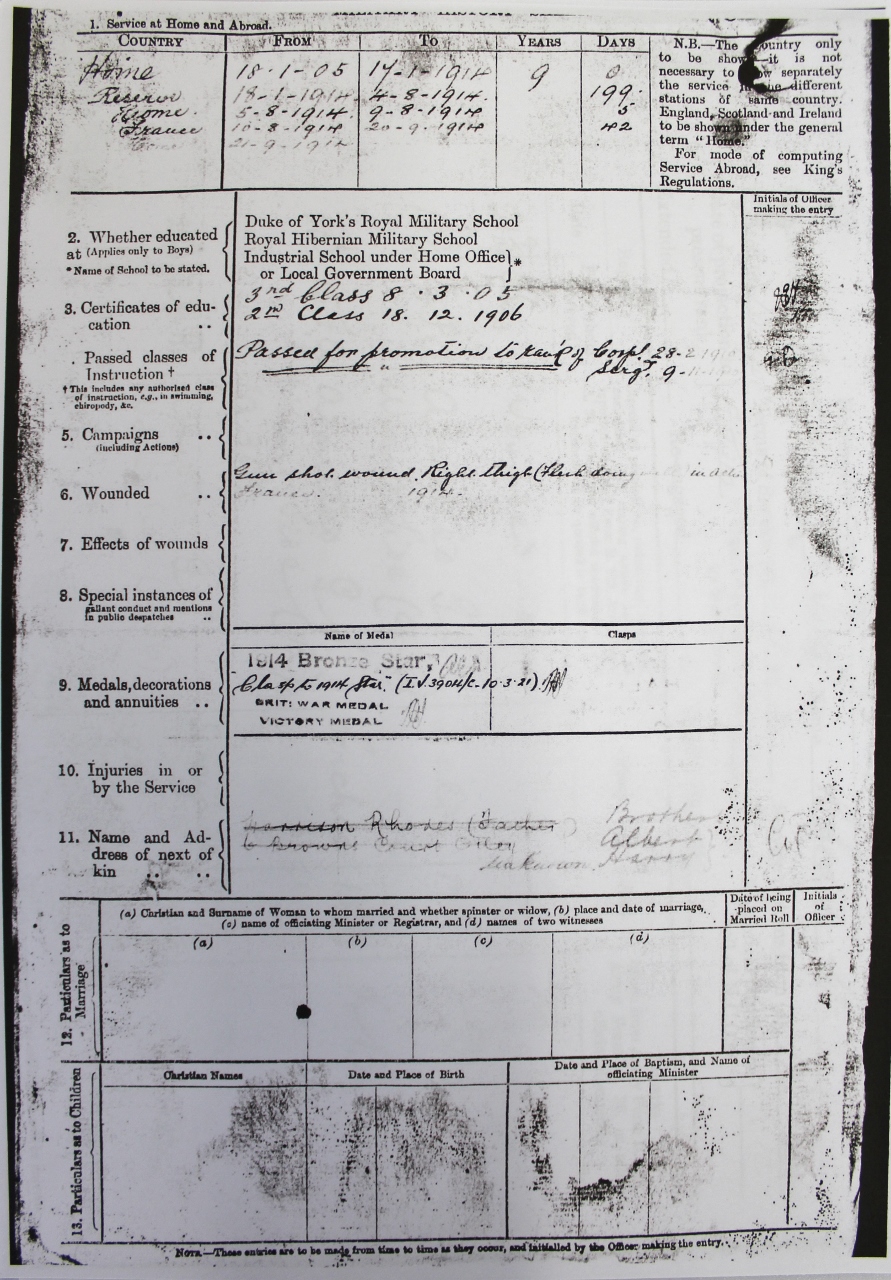 MILITARY HISTORY
1. Service at Home and Abroad.
COUNTRY FROM TO YEARS DAYS
Home 18-1-05 17-1-1914 9 0
Reserve 18-1-1914 4-8-1914. 199.
Home 5-8-1914. 9-8-1914 5
France 10-8-1914 20-9-1914 42
Home 21-9-1914
N.B.—The country only
to be show it is not
necessary to separately
the service in the different
stations of same country.
England, Scotland and Ireland
to be shown under the general
term "Home."
For mode of computing
Service Abroad, see King's
Regulations.
Initials of Officer
making the entry
2. Whether educated
at (Applies only to Boys)
*Name of School to be stated.
Duke of York's Royal Military School
Royal Hibernian Military School
Industrial School under Home Office
or Local Government Board } *
3. Certificates of edu-
cation ..
3rd Class 8 . 3 . 05
2nd Class 18. 12. 1906
. Passed classes of
Instruction †
† This includes any authorised class
of instruction, e.g., in swimming,
chiropody, &c.
Passed for promotion to rank of Corpl. 28-2
" Sergt. 9-
5. Campaigns ..
(including Actions)
6. Wounded ..
Gun shot wound Right thigh (Flesh doing in
France. 1914.
7. Effects of wounds
8. Special instances of
gallant conduct and mentions
in public despatches ..
Name of Medal Clasps
9. Medals, decorations
and annuities ..
1914 Bronze Star,
Clasp to 1914 Star" (I.V.3904/C-10-3-21)
BRIT: WAR MEDAL
VICTORY MEDAL
10. Injuries in or
by the Service
11. Name and Ad-
dress of next of
kin .. ..
Harrison Rhodes (Father)
6 Browns Court Otley
Brother
Albert
unknown Harry
12. Particulars as to
Marriage
(a) Christian and Surname of Woman to whom married and whether spinster or widow, (b) place and date of marriage,
(c) name of officiating Minister or Registrar, and (d) names of two witnesses
Date of being
placed on
Married Roll
Initials
of
Officer
(a) (b) (c) (d)
13. Particulars as to Children
Christian Names Date and Place of Birth
Date and Place of Baptism, and Name of
officiating Minister
NOTE.—These entries are to be made from time to time as they occur, and initialled by the Officer making the entry.